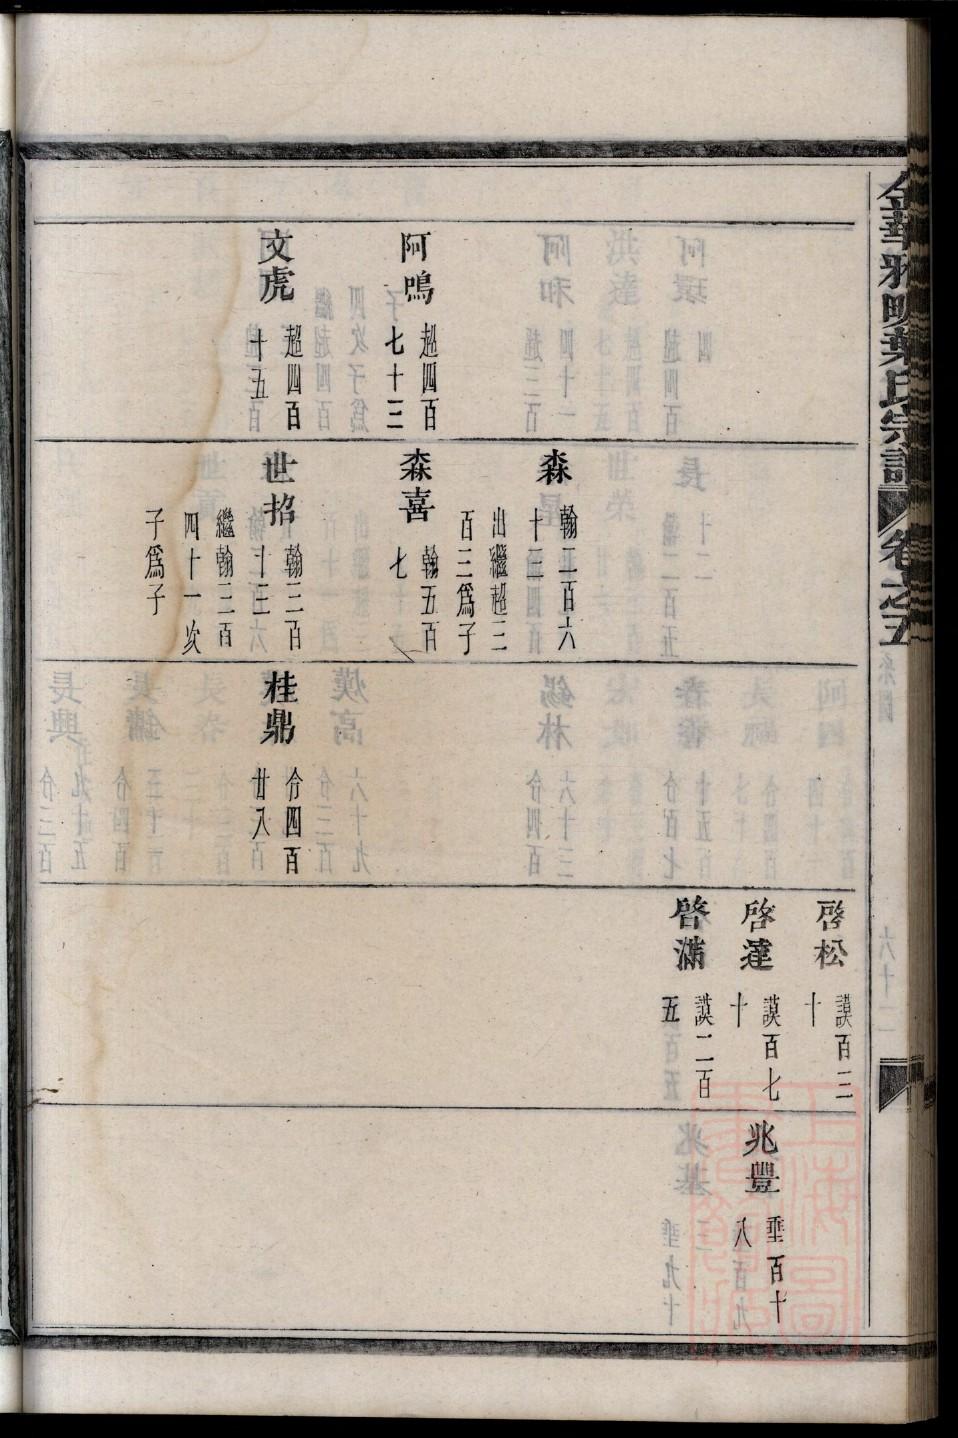 金華雅畈葉氏宗譜
卷之五
阿鳴
超四百
七十三
文虎
超四百
十五
森
翰二百六
十三
出繼超三
百三為子
森喜
翰五百
七
世招
翰三百
十三
繼翰三百
四十一次
子為子
桂鼎
令四百
廿八
啓松
謨百三
十
啓達
謨百七
十
啓滿
謨二百
五
兆豐
垂百十
八